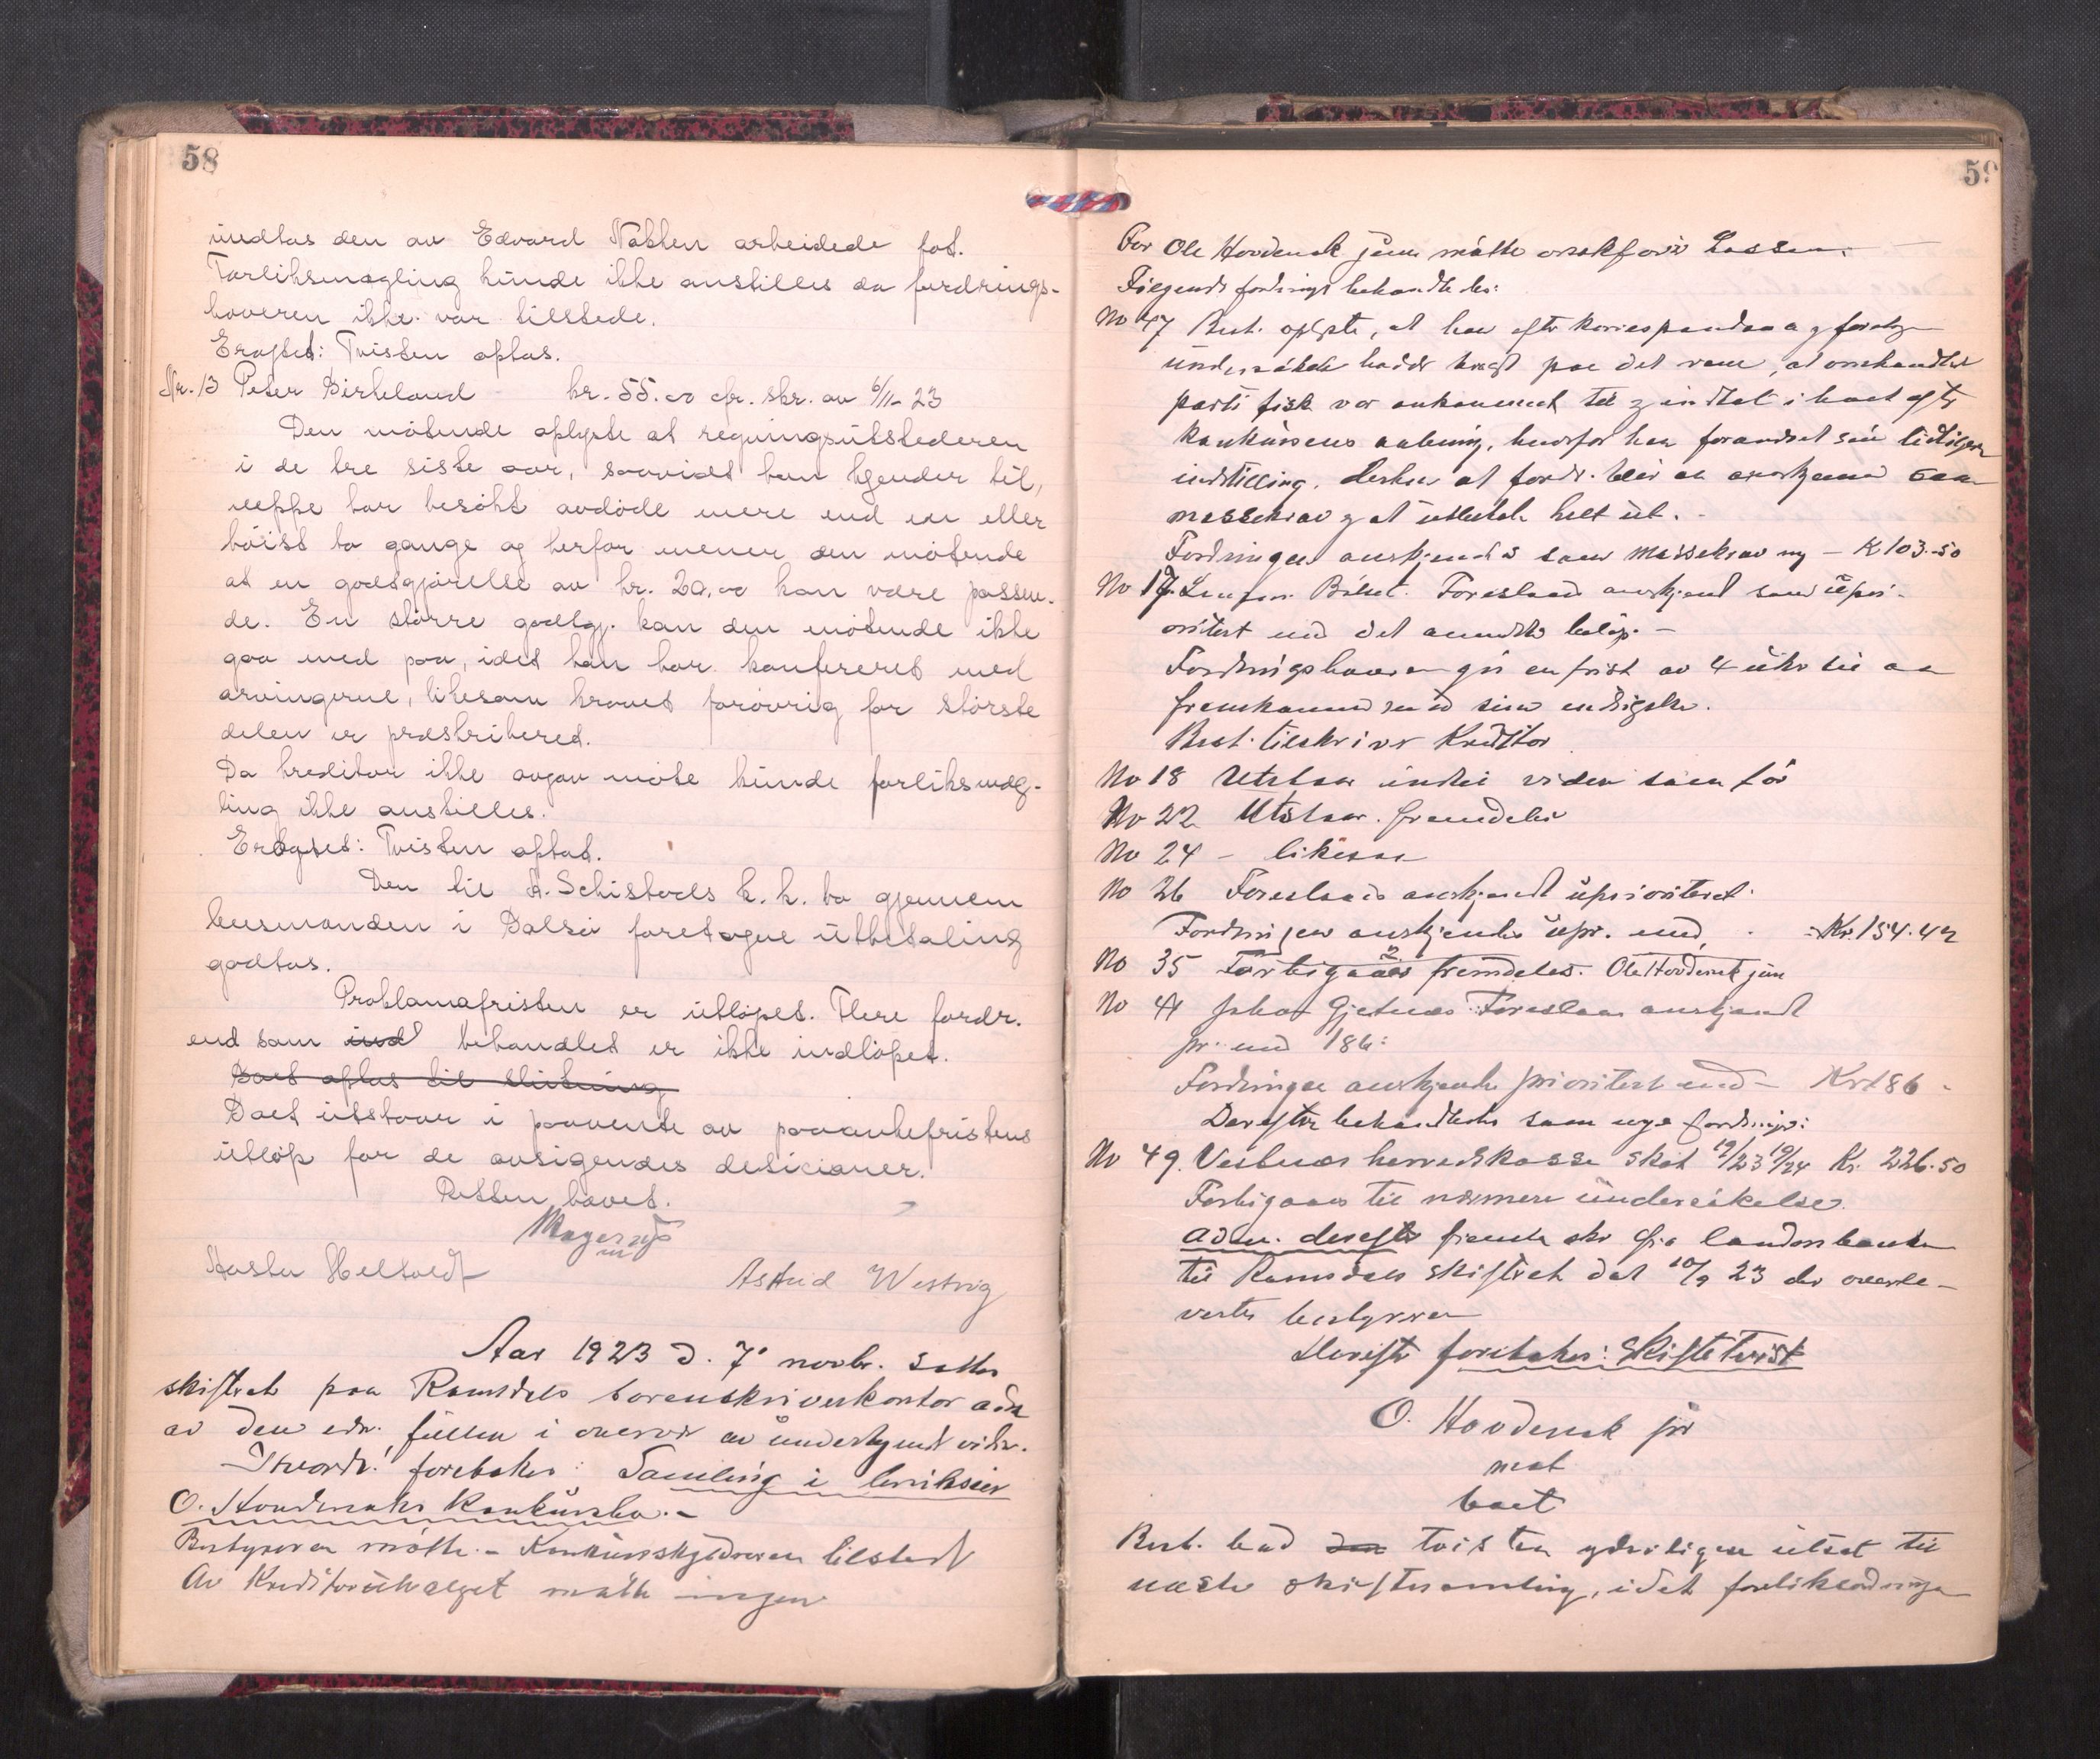 58
undtas den av Edvard Nakken arbeidede fot.
Forliksmægling kunde ikke anstilles da fordrings-
haveren ikke var tilstede.
Eragtet: Tvisten optas.
Nr. 13 Peter Birkeland kr. 55.00 cfr. skr. av 6/11-23
Den møtende oplyste at regningsutstederen
i de tre siste aar, saavidt han kjender til,
neppe har besøkt avdøde mere end en eller
høist to gange og herfor mener den møtende
at en godtgjørelse av kr. 20.00 kan være passen-
de. En større godtgj. kan den møtende ikke
gaa med paa, idet han har konfereret med
arvingerne, likesom kravet forøvrig for største
delen er præskriberet.
Da kreditor ikke avgav møte kunde forliksmæg-
ling ikke anstilles.
Eragtet: Tvisten optat.
Den til A. Schistads k.k. bo gjennem
lensmanden i Bolsø foretagne utbetaling
godtas.
Proklamafristen er utløpet. Flere fordr.
end som ind behandlet er ikke indløpet.
Boet optas til slutning
Boet utstaar i paavente av paaankefristens
utløp for de avsigendes desicioner.
Retten hævet.
Astrid Westvig
Aar 1923 d. 7 novbr. sattes
skifteret paa Romsdals sorenskriverkontor adm
av den edv. fuldm i overvær av undertegnet vidn.
Hvorda: foretokes: Samling i
O. Hovdenaks konkursbo.-
Bestyreren møtte.- Konkursskyldneren tilstede
Av Kreditorutvalget møtte ingen
59
For Ole Hovdenak jun møtte orsakfører Lassen.
Følgende fordringer behandledes:
No 47 Best. oplyste, at han efter korrespondance og foretagne
undersøkelse hadde bragt paa det rene, at omhandlede
parti fisk var ankommet til og indtat i boet efter
konkursens aabning, hvorfor han forandret sin tidligere
indstilling, derhen at fordr. blir at anerkjende som
massekrav og at utbetale helt ut.-
Fordringen anerkjendes som massekrav ny - K 103.50
No 17. Foreslaaes anerkjent som upri-
oritert med det anmeldte beløp.-
Fordringshaveren gis en frist av 4 uker til aa
fremkomme med sine indsigelser.
Best. tilskriver Kreditor
No 18 Utstaar indtil videre som før
No 22 Utstaar fremdeles
No 24 - likesaa
No 26 Foreslaaes anerkjendt uprioriteret.
Fordringen anerkjendes upr. med - Kr. 154.42
No 35 Forbigaaes fremdeles. Ole Hovdenak jun
No 41 Johan Gjetnes Foreslaaes anerkjendt
pr. med 186:
Fordringen anerkjendes prioritert med - Kr 186 -
Derefter behandledes som nye fordringer:
No 49. Vestnes herredskasse skat 19/23 19/24 Kr. 226.50
Forbigaaes til nærmere undersøkelse.
Adm. derefter fremla skr fra landbanken
til Romsdals skifteret dat 10/9 23 der overle-
vertes bestyreren
Derefter foretokes: Skiftetvist
O. Hovdenak jr
mot
boet
Best. bad den tvisten yderligere utsat til
næste skiftesamling, idet forliksordningen